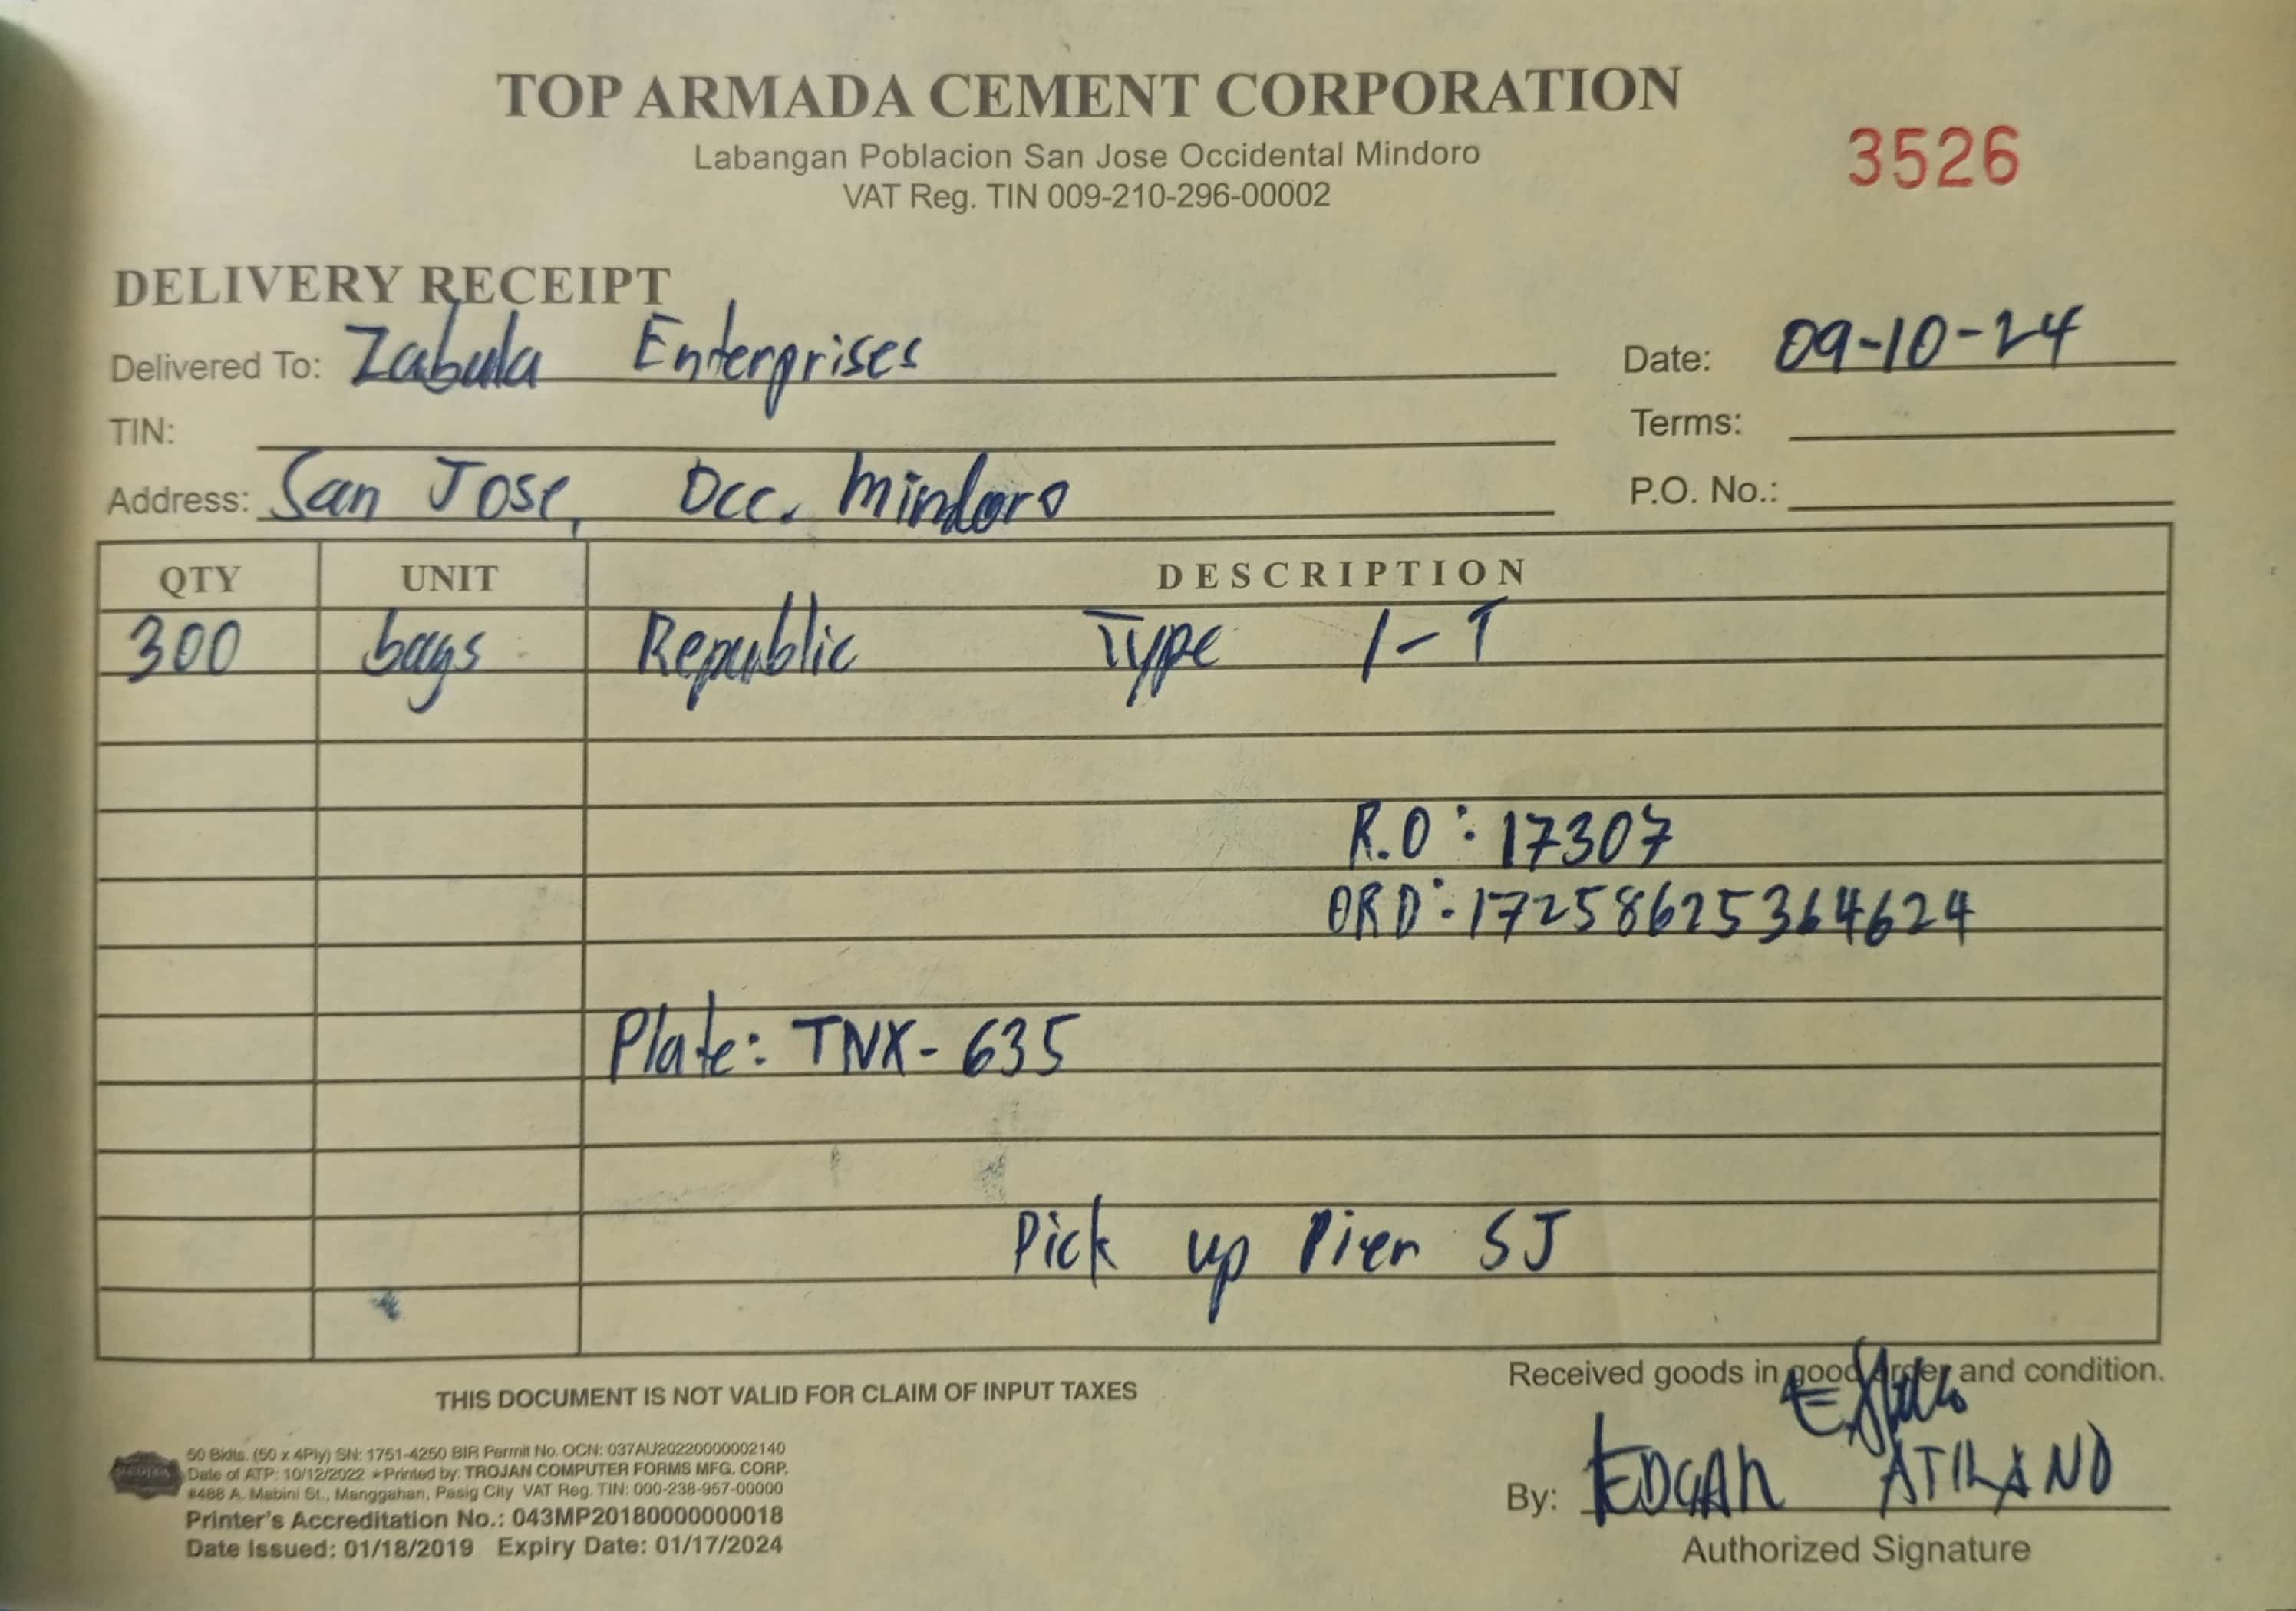 TOP ARMADA CEMENT CORPORATION
Labangan Poblacion San Jose Occidental Mindoro
VAT Reg. TIN 009-210-296-00002
3526
DELIVERY RECEIPT
Delivered To: Zabula Enterprises
Date: 09-10-24
TIN:
Terms:
Address: San Jose, Occ. Mindoro
P.O. No.:
QTY UNIT DESCRIPTION
300 bags Republic Type 1-T
R.O : 17307
ORD: 17258625364624
Plate: TNX-635
Pick up Pier SJ
Received goods in good order and condition.
THIS DOCUMENT IS NOT VALID FOR CLAIM OF INPUT TAXES
50 Bklts. (50 x 4Ply) SN: 1751-4250 BIR Permit No. OCN: 037AU20220000002140
Date of ATP: 10/12/2022 * Printed by: TROJAN COMPUTER FORMS MFG. CORP.
#488 A. Mabini St., Manggahan, Pasig City VAT Reg. TIN: 000-238-957-00000
Printer's Accreditation No.: 043MP20180000000018
Date Issued: 01/18/2019 Expiry Date: 01/17/2024
By: EDGAR ATILANO
Authorized Signature